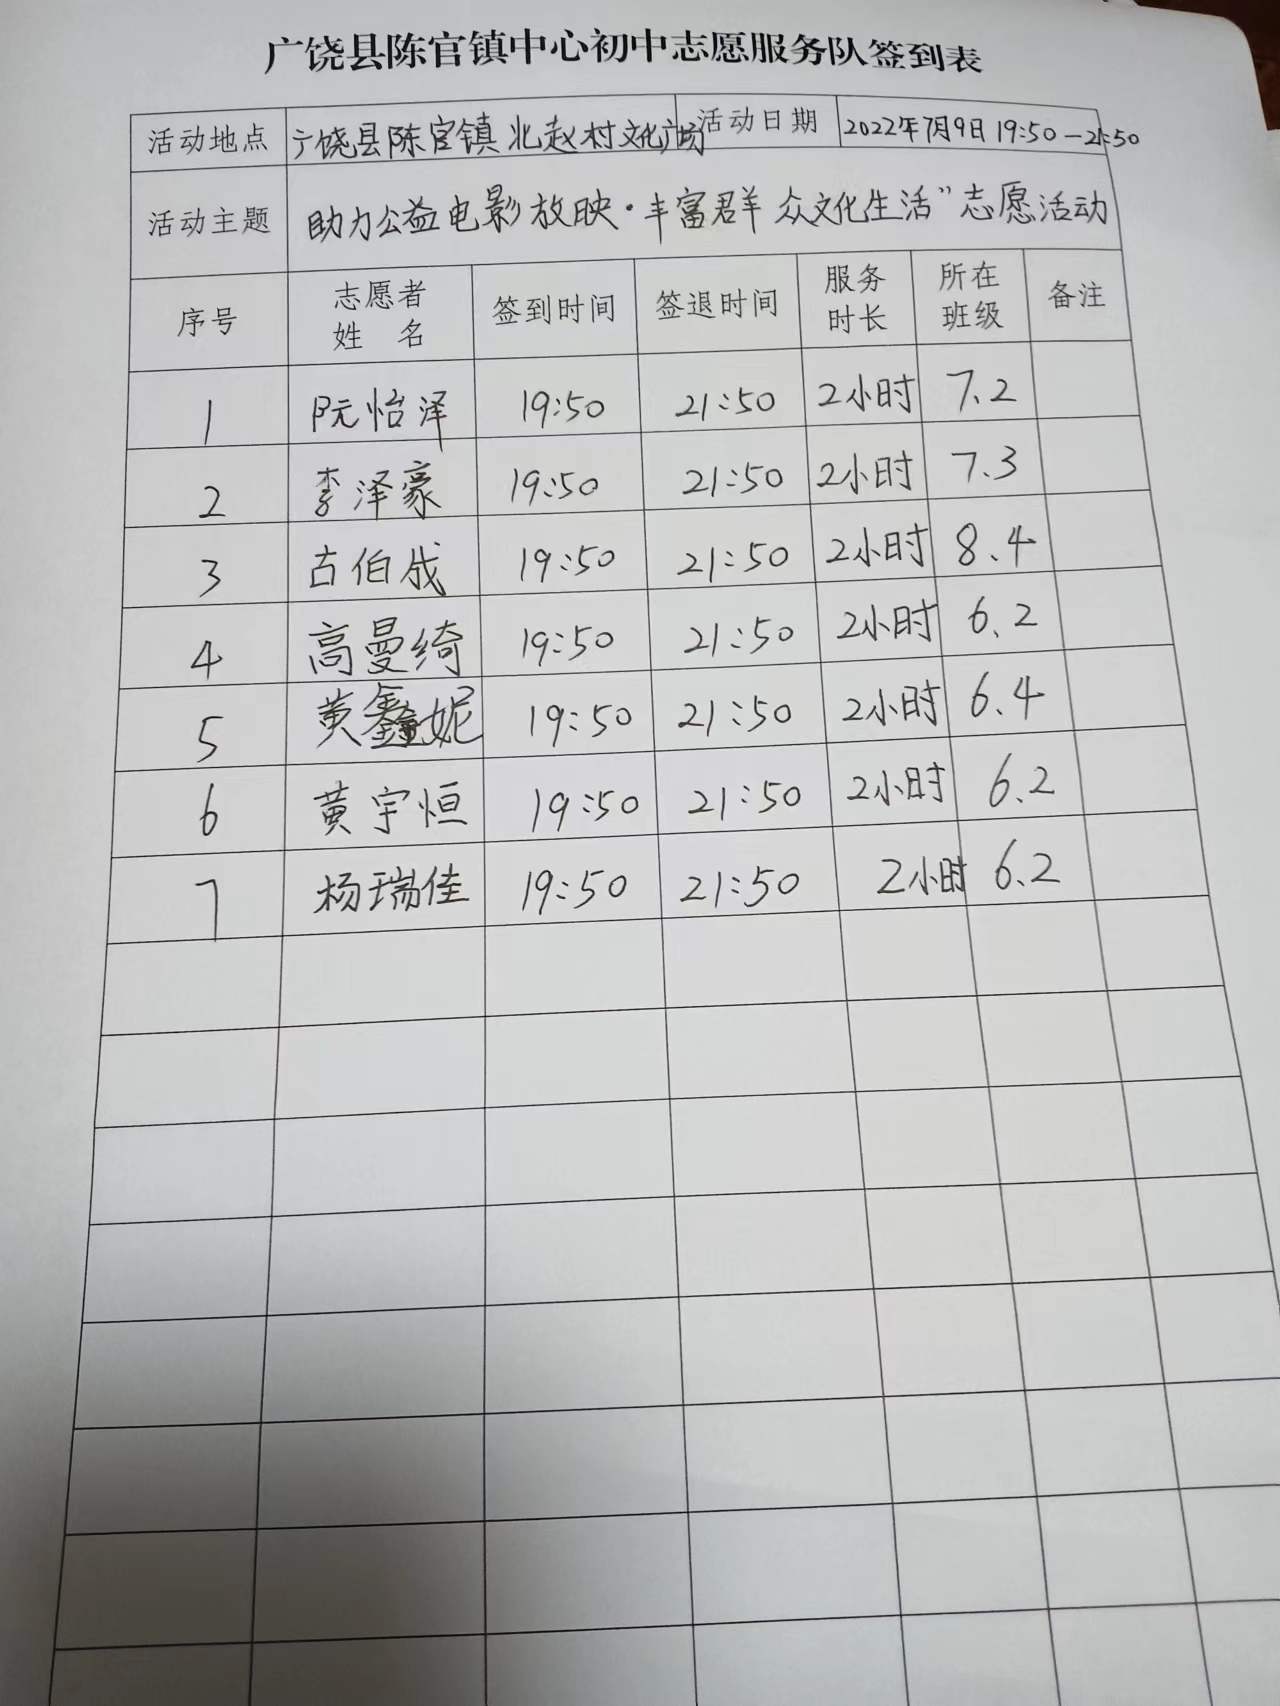 广饶县陈官镇中心初中志愿服务队签到表
活动地点 广饶县陈官镇北赵村文化广场 活动日期 2022年7月9日 19:50-21:50
活动主题 助力公益电影放映·丰富群众文化生活”志愿活动
序号 志愿者姓名 签到时间 签退时间 服务时长 所在班级 备注
1 阮怡泽 19:50 21:50 2小时 7.2
2 李泽豪 19:50 21:50 2小时 7.3
3 古伯成 19:50 21:50 2小时 8.4
4 高曼绮 19:50 21:50 2小时 6.2
5 黄鑫妮 19:50 21:50 2小时 6.4
6 黄宇恒 19:50 21:50 2小时 6.2
7 杨瑞佳 19:50 21:50 2小时 6.2